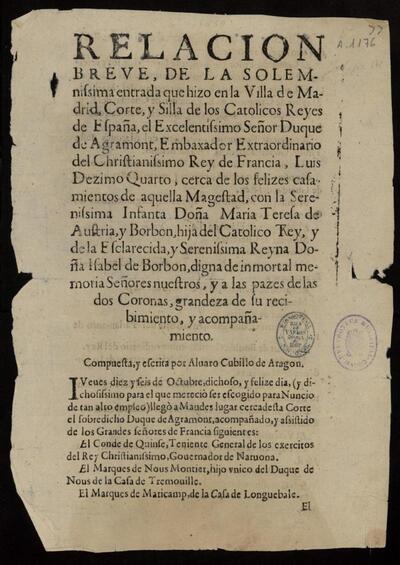 A-1176
RELACION
BREVE, DE LA SOLEM-
nissima entrada que hizo en la Villa de Ma-
drid, Corte, y Silla de los Catolicos Reyes
de España, el Excelentissimo Señor Duque
de Agramont, Embaxador Extraordinario
del Christianissimo Rey de Francia, Luis
Dezimo Quarto, cerca de los felizes casa-
mientos de aquella Magestad, con la Sere-
nissima Infanta Doña Maria Teresa de
Austria, y Borbon, hija del Catolico Rey, y
de la Esclarecida, y Serenissima Reyna Do-
ña Isabel de Borbon, digna de inmortal me-
moria Señores nuestros, y a las pazes de las
dos Coronas, grandeza de su reci-
bimiento, y acompaña-
miento.
Compuesta, y escrita por Alvaro Cubillo de Aragon.
IVeves diez y seis de Octubre, dichoso, y felize dia, (y di-
chosissimo para el que mereciò ser escogido para Nuncio
de tan alto empleo) llegò a Maudes lugar cerca desta Corte
el sobredicho Duque de Agramont, acompañado, y assistido
de los Grandes señores de Francia siguientes:
El Conde de Quinse, Teniente General de los exercitos
del Rey Christianissimo, Governador de Narvona.
El Marques de Nous Montier, hijo vnico del Duque de
Nous de la Casa de Tremouille.
El Marques de Maricamp, de la Casa de Longuebale.
El